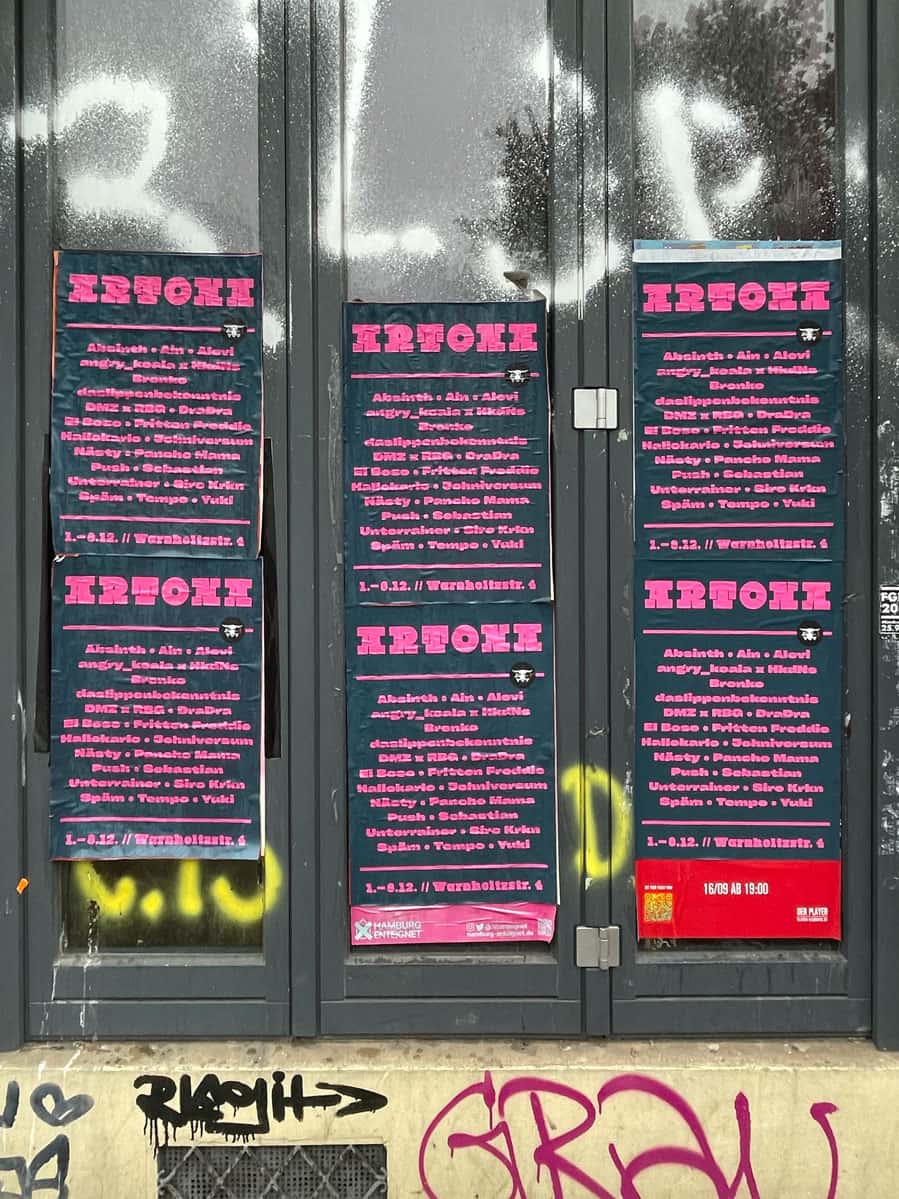 ARTONA
Absinth • Ain • Alovi
angry_koala x HkdNs
Bronko
daslippenbekenntnis
DMZ x RBG • DraDra
El Boso • Fritten Freddie
Hallokarlo • Johniversum
Nästy • Pancho Mama
Push • Sebastian
Unterrainer • Siro Krkn
Späm • Tempo • Yuki
1.–8.12. // Warnholtzstr. 4
ARTONA
Absinth • Ain • Alovi
angry_koala x HkdNs
Bronko
daslippenbekenntnis
DMZ x RBG • DraDra
El Boso • Fritten Freddie
Hallokarlo • Johniversum
Nästy • Pancho Mama
Push • Sebastian
Unterrainer • Siro Krkn
Späm • Tempo • Yuki
1.–8.12. // Warnholtzstr. 4
ARTONA
Absinth • Ain • Alovi
angry_koala x HkdNs
Bronko
daslippenbekenntnis
DMZ x RBG • DraDra
El Boso • Fritten Freddie
Hallokarlo • Johniversum
Nästy • Pancho Mama
Push • Sebastian
Unterrainer • Siro Krkn
Späm • Tempo • Yuki
1.–8.12. // Warnholtzstr. 4
ARTONA
Absinth • Ain • Alovi
angry_koala x HkdNs
Bronko
daslippenbekenntnis
DMZ x RBG • DraDra
El Boso • Fritten Freddie
Hallokarlo • Johniversum
Nästy • Pancho Mama
Push • Sebastian
Unterrainer • Siro Krkn
Späm • Tempo • Yuki
1.–8.12. // Warnholtzstr. 4
HAMBURG
ENTEIGNET
hamburg-enteignet.de
ARTONA
Absinth • Ain • Alovi
angry_koala x HkdNs
Bronko
daslippenbekenntnis
DMZ x RBG • DraDra
El Boso • Fritten Freddie
Hallokarlo • Johniversum
Nästy • Pancho Mama
Push • Sebastian
Unterrainer • Siro Krkn
Späm • Tempo • Yuki
1.–8.12. // Warnholtzstr. 4
ARTONA
Absinth • Ain • Alovi
angry_koala x HkdNs
Bronko
daslippenbekenntnis
DMZ x RBG • DraDra
El Boso • Fritten Freddie
Hallokarlo • Johniversum
Nästy • Pancho Mama
Push • Sebastian
Unterrainer • Siro Krkn
Späm • Tempo • Yuki
1.–8.12. // Warnholtzstr. 4
16/09 AB 19:00
DER PLAYER